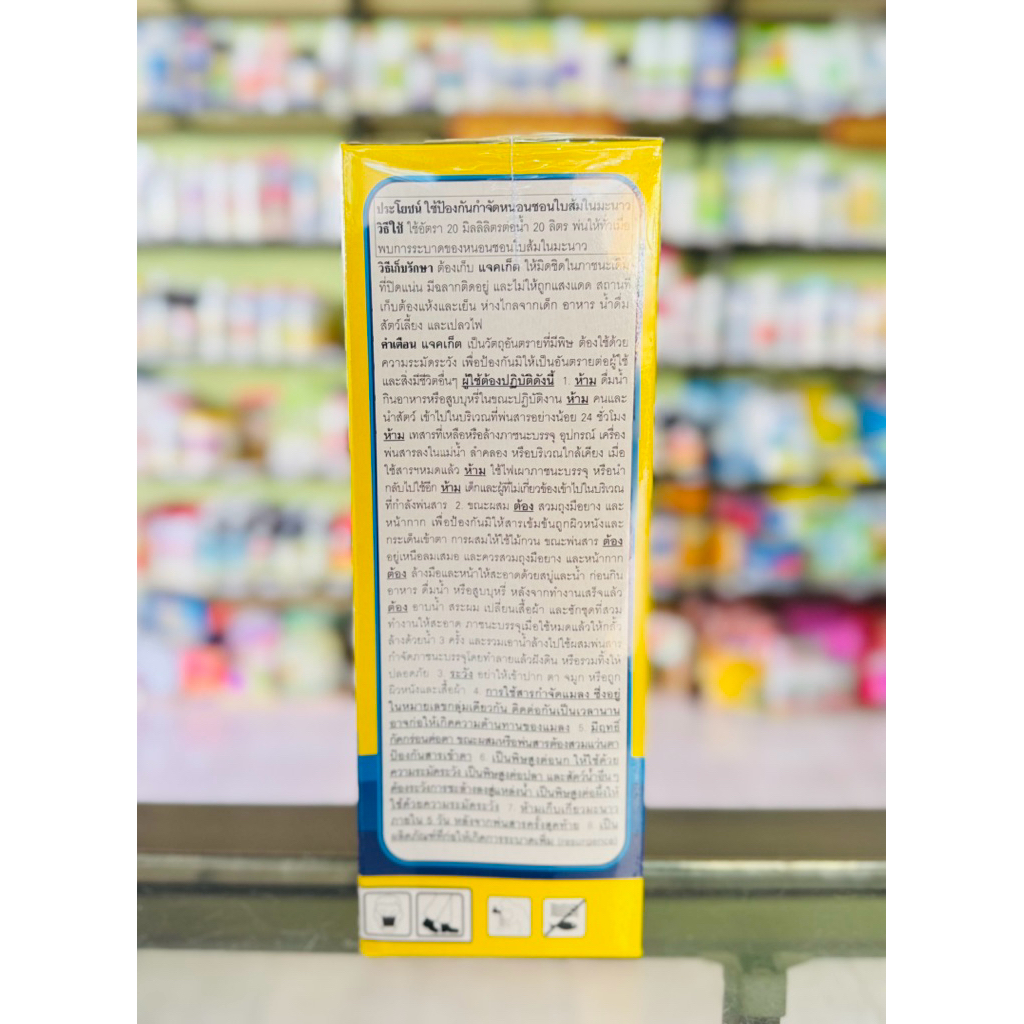 ประโยชน์ ใช้ป้องกันกำจัดหนอนชอนใบส้มในมะนาว
วิธีใช้ ใช้อัตรา 20 มิลลิลิตรต่อน้ำ 20 ลิตร พ่นให้ทั่วเมื่อ
พบการระบาดของหนอนชอนใบส้มในมะนาว
วิธีเก็บรักษา ต้องเก็บ แจคเก็ต ให้มิดชิดในภาชนะเดิม
ที่ปิดแน่น มีฉลากติดอยู่ และไม่ให้ถูกแสงแดด สถานที่
เก็บต้องแห้งและเย็น ห่างไกลจากเด็ก อาหาร น้ำดื่ม
สัตว์เลี้ยง และเปลวไฟ
คำเตือน แจคเก็ต เป็นวัตถุอันตรายที่มีพิษ ต้องใช้ด้วย
ความระมัดระวัง เพื่อป้องกันมิให้เป็นอันตรายต่อผู้ใช้
และสิ่งมีชีวิตอื่นๆ ผู้ใช้ต้องปฏิบัติดังนี้ 1. ห้าม ดื่มน้ำ
กินอาหารหรือสูบบุหรี่ในขณะปฏิบัติงาน ห้าม คนและ
นำสัตว์ เข้าไปในบริเวณที่พ่นสารอย่างน้อย 24 ชั่วโมง
ห้าม เทสารที่เหลือหรือล้างภาชนะบรรจุ อุปกรณ์ เครื่อง
พ่นสารลงในแม่น้ำ ลำคลอง หรือบริเวณใกล้เคียง เมื่อ
ใช้สารฯหมดแล้ว ห้าม ใช้ไฟเผาภาชนะบรรจุ หรือนำ
กลับไปใช้อีก ห้าม เด็กและผู้ที่ไม่เกี่ยวข้องเข้าไปในบริเวณ
ที่กำลังพ่นสาร 2. ขณะผสม ต้อง สวมถุงมือยาง และ
หน้ากาก เพื่อป้องกันมิให้สารเข้มข้นถูกผิวหนังและ
กระเด็นเข้าตา การผสมให้ใช้ไม้กวน ขณะพ่นสาร ต้อง
อยู่เหนือลมเสมอ และควรสวมถุงมือยาง และหน้ากาก
ต้อง ล้างมือและหน้าให้สะอาดด้วยสบู่และน้ำ ก่อนกิน
อาหาร ดื่มน้ำ หรือสูบบุหรี่ หลังจากทำงานเสร็จแล้ว
ต้อง อาบน้ำ สระผม เปลี่ยนเสื้อผ้า และซักชุดที่สวม
ทำงานให้สะอาด ภาชนะบรรจุเมื่อใช้หมดแล้วให้กลั้ว
ล้างด้วยน้ำ 3 ครั้ง และรวมเอาน้ำล้างไปใช้ผสมพ่นสาร
กำจัดภาชนะบรรจุโดยทำลายแล้วฝังดิน หรือรวมทิ้งให้
ปลอดภัย 3. ระวัง อย่าให้เข้าปาก ตา จมูก หรือถูก
ผิวหนังและเสื้อผ้า 4. การใช้สารกำจัดแมลง ซึ่งอยู่
ในหมายเลขกลุ่มเดียวกัน ติดต่อกันเป็นเวลานาน
อาจก่อให้เกิดความต้านทานของแมลง 5. มีฤทธิ์
กัดกร่อนต่อตา ขณะผสมหรือพ่นสารต้องสวมแว่นตา
ป้องกันสารเข้าตา 6. เป็นพิษสูงต่อนก ให้ใช้ด้วย
ความระมัดระวัง เป็นพิษสูงต่อปลา และสัตว์น้ำอื่น ๆ
ต้องระวังการชะล้างลงสู่แหล่งน้ำ เป็นพิษสูงต่อผึ้งให้
ใช้ด้วยความระมัดระวัง 7. ห้ามเก็บเกี่ยวมะนาว
ภายใน 5 วัน หลังจากพ่นสารครั้งสุดท้าย 8. เป็น
ผลิตภัณฑ์ที่ก่อให้เกิดการระบาดเพิ่ม (resurgence)